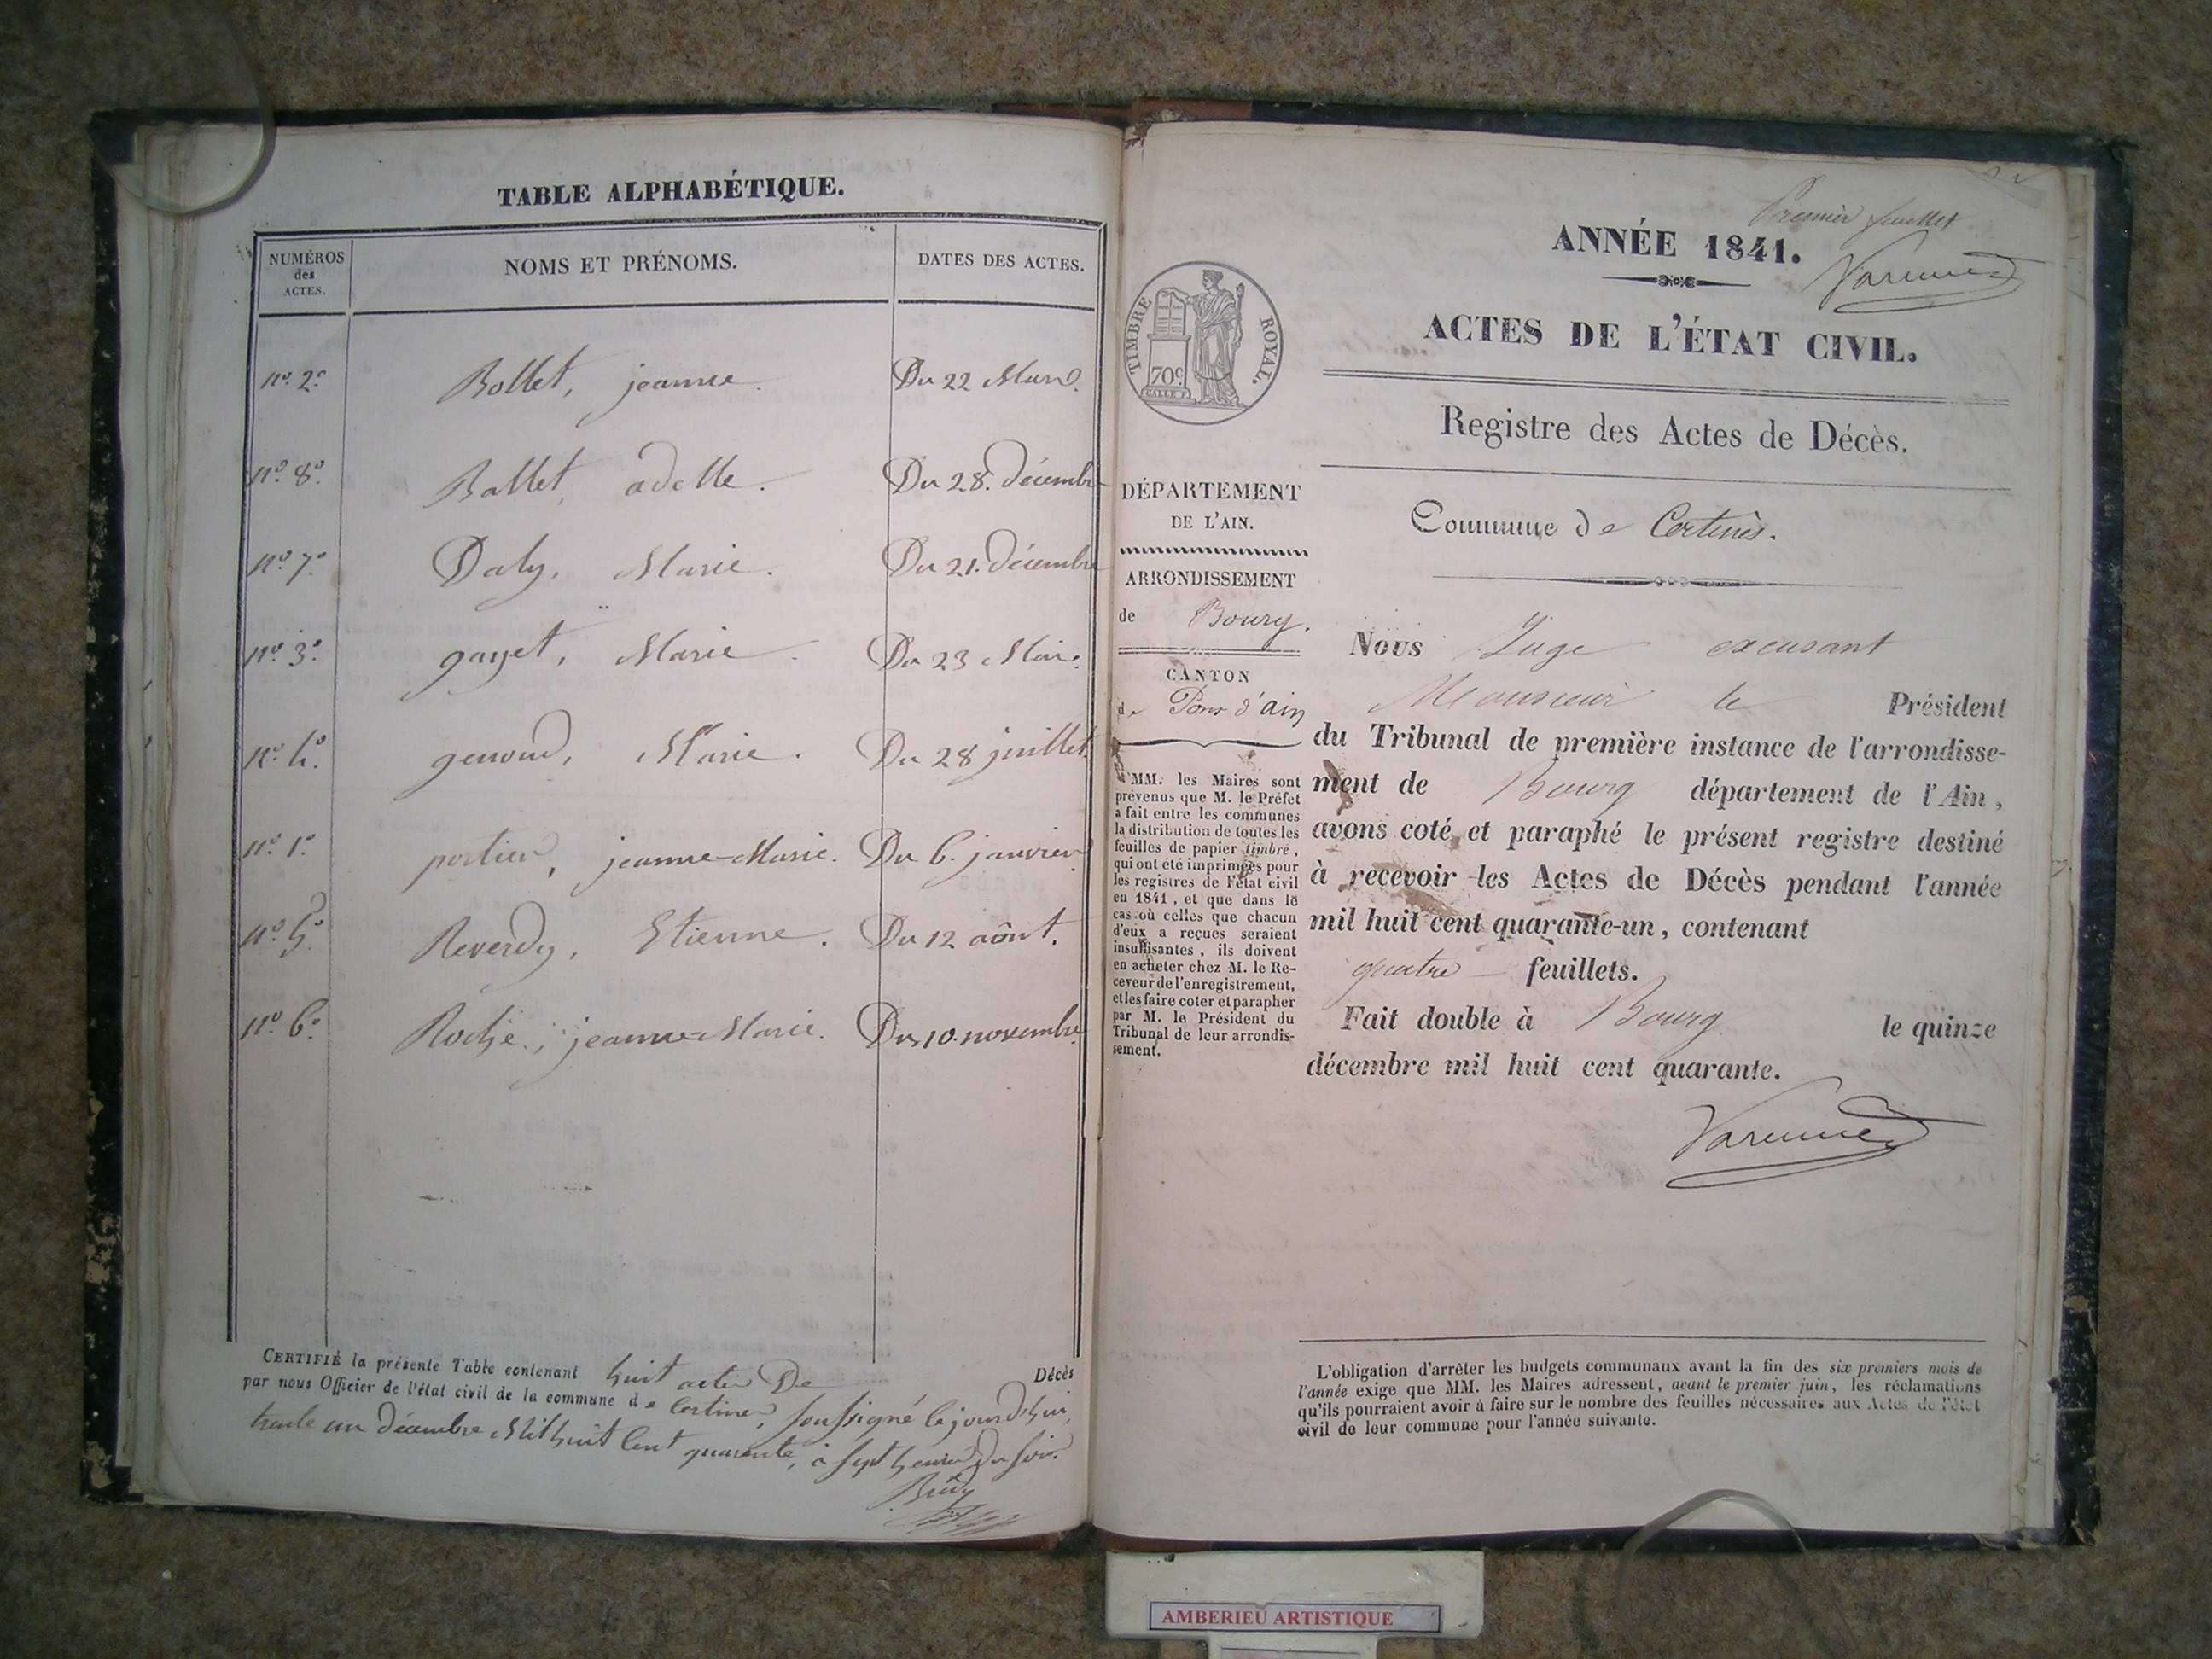 TABLE ALPHABÉTIQUE.
NUMÉROS des ACTES. NOMS ET PRÉNOMS. DATES DES ACTES.
nº. 2º Bollet, jeanne. Du 22 Mars.
nº. 8º. Ballet, adelle. Du 28. décembre
nº. 7º Daly, Marie. Du 21. décembre
nº. 3º. gayet, Marie. Du 23 Mai.
nº. 4º. genoud, Marie. Du 28 juillet
nº. 1º. portier, jeanne-Marie. Du 6. janvier
nº. 5º. Reverdy, Etienne. Du 12 août.
nº. 6º. Roche, jeanne-Marie. Du 10. novembre
CERTIFIÉ la présente Table contenant huit actes De Décès
par nous Officier de l'état civil de la commune de Certines, soussigné cejourd'hui,
trente un décembre Mil huit Cent quarante, à sept heures du soir.
Premier feuillet
ANNÉE 1841.
ACTES DE L'ÉTAT CIVIL.
TIMBRE ROYAL.
70c
Registre des Actes de Décès.
Commune de Certines.
DÉPARTEMENT
DE L'AIN.
ARRONDISSEMENT
de Bourg.
CANTON
de Pont d'ain
MM. les Maires sont
prévenus que M. le Préfet
a fait entre les communes
la distribution de toutes les
feuilles de papier timbré,
qui ont été imprimées pour
les registres de l'état civil
en 1841, et que dans le
cas où celles que chacun
d'eux a reçues seraient
insuffisantes, ils doivent
en acheter chez M. le Re-
ceveur de l'enregistrement,
et les faire coter et parapher
par M. le Président du
Tribunal de leur arrondis-
sement.
Nous Juge excusant
Monsieur le Président
du Tribunal de première instance de l'arrondisse-
ment de Bourg département de l'Ain,
avons coté et paraphé le présent registre destiné
à recevoir les Actes de Décès pendant l'année
mil huit cent quarante-un, contenant
quatre feuillets.
Fait double à Bourg le quinze
décembre mil huit cent quarante.
L'obligation d'arrêter les budgets communaux avant la fin des six premiers mois de
l'année exige que MM. les Maires adressent, avant le premier juin, les réclamations
qu'ils pourraient avoir à faire sur le nombre des feuilles nécessaires aux Actes de l'état
civil de leur commune pour l'année suivante.
AMBERIEU ARTISTIQUE